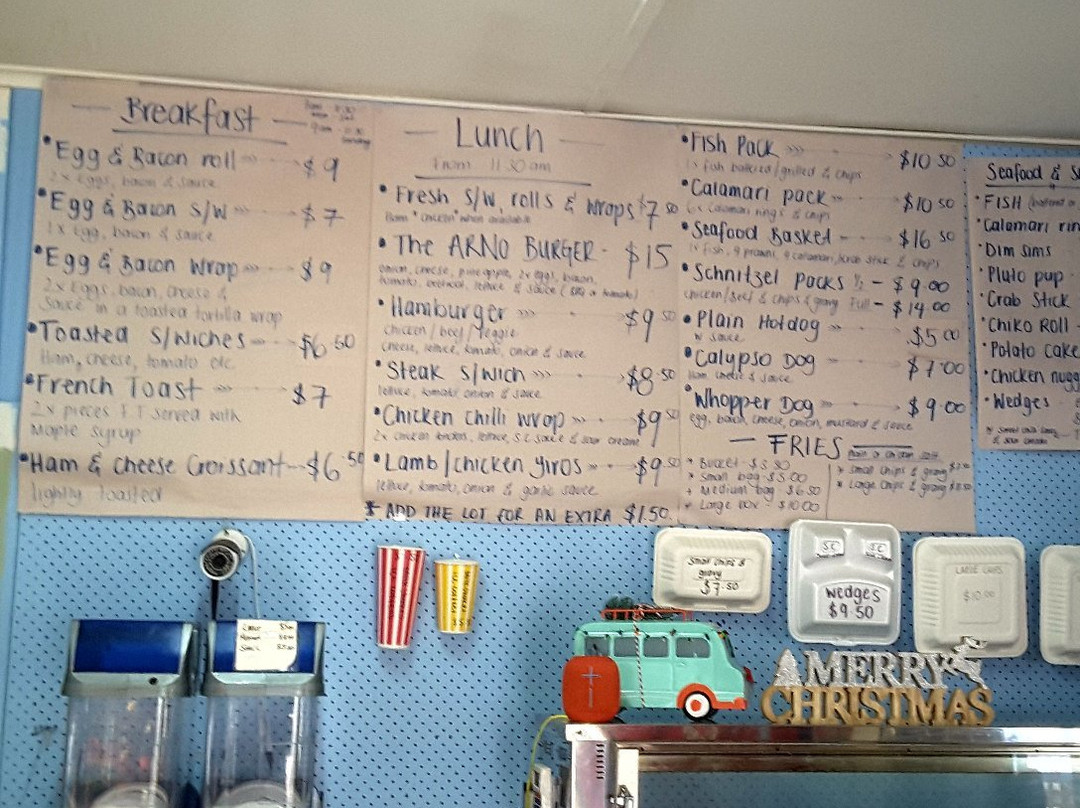 Breakfast
• Egg & Bacon roll $9
2 x Eggs, bacon & sauce
• Egg & Bacon S/W $7
1 x Egg, bacon & sauce
• Egg & Bacon Wrap $9
2 x Eggs, bacon, cheese &
sauce in a toasted tortilla wrap
• Toasted S/Wiches $6.50
Ham, cheese, tomato etc
• French Toast $7
2 x pieces F.T served with
Maple syrup
• Ham & Cheese Croissant $6.50
lightly toasted
Lunch
From 11.30am
• Fresh S/W, rolls & wraps $7.50
Ham * Chicken * when available
• The ARNO BURGER - $15
bacon, cheese, pineapple, 2x eggs, bacon,
tomato, beetroot, lettuce & sauce (BBQ or tomato)
• Hamburger $9.50
chicken / beef / veggie
cheese, lettuce, tomato, onion & sauce
• Steak S/wich $8.50
lettuce, tomato, onion & sauce
• Chicken chilli wrap $9.50
2x chicken tenders, lettuce, S.C sauce & sour cream
• Lamb / chicken yiros $9.50
lettuce, tomato, onion & garlic sauce
* ADD THE LOT FOR AN EXTRA $1.50
• Fish Pack $10.50
1x fish battered/grilled & chips
• Calamari pack $10.50
6x Calamari rings & chips
• Seafood Basket $16.50
1x fish, 4 prawns, 4 calamari, krab stick & chips
• Schnitzel packs 1/2 - $9.00
chicken/beef & chips & gravy Full - $14.00
• Plain Hotdog $5.00
w sauce
• Calypso Dog $7.00
ham, cheese & sauce
• Whopper Dog $9.00
egg, bacon, cheese, onion, mustard & sauce
FRIES
plain or chicken salt
* Bucket - $3.50
* Small bag - $5.00
* Medium bag - $6.50
* Large box - $10.00
* Small chips & gravy $7.50
* Large chips & gravy
Seafood &
• FISH
• Calamari
• Dim Sims
• Pluto pup
• Crab Stick
• Chiko Roll
• Potato Cake
• Chicken nugg
• Wedges
& sour cream
Small chips &
gravy
$7.50
SC
SC
Wedges
$9.50
LARGE CHIPS
$10.00
MERRY
CHRISTMAS